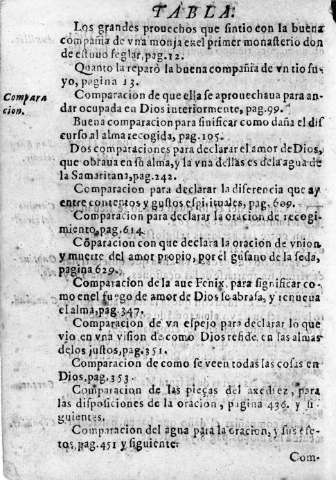 TABLA.
Los grandes prouechos que sintio con la buena
compañia de vna monja en el primer monasterio don
de estuuo seglar, pag. 12.
Quanto la reparò la buena compañia de vn tio su
yo, pagina 13.
Compara
cion.
Comparacion de que ella se aprouechaua para an
dar ocupada en Dios interiormente, pag. 99.
Buena comparacion para sinificar como daña el dis
curso al alma recogida, pag. 105.
Dos comparaciones para declarar el amor de Dios,
que obraua en su alma, y la vna dellas es de la agua de
la Samaritana, pag. 242.
Comparacion para declarar la diferencia que ay
entre contentos y gustos espirituales, pag. 609.
Comparacion para declarar la oracion de recogi
miento, pag. 614.
Cõparacion con que declara la oracion de vnion
y muerte del amor propio, por el gusano de la seda,
pagina 629.
Comparacion de la aue Fenix, para significar co-
mo en el fuego de amor de Dios se abrasa, y renueua
el alma, pag. 347.
Comparacion de vn espejo para declarar lo que
vio en vna vision de como Dios reside en las almas
de los justos, pag. 351.
Comparacion de como se veen todas las cosas en
Dios, pag. 353.
Comparacion de las pieças del axedrez, para
las disposiciones de la oracion, pagina 436. y si
guientes.
Comparacion del agua para la oracion, y sus efe-
tos, pag. 451 y siguiente.
Com-